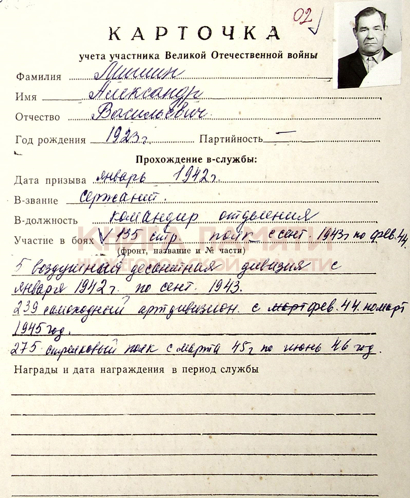 02
КАРТОЧКА
учета участника Великой Отечественной войны
Фамилия Мишин
Имя Александр
Отчество Васильевич.
Год рождения 1923г. Партийность —
Прохождение в-службы:
Дата призыва январь 1942г.
В-звание сержант.
В-должность командир отделения
Участие в боях 195 стр. полк с сент. 1943г по фев. 44.
(фронт, название и № части)
КНИГА ПАМЯТИ
НИЖЕГОРОДСКОЙ ОБЛАСТИ
5 воздушный десантная дивизия с
января 1942г. по сент. 1943.
239 самоходный артдивизион. с март фев. 44. по март
1945 год.
275 стрелковый полк с марта 45г по июнь 46 год.
Награды и дата награждения в период службы